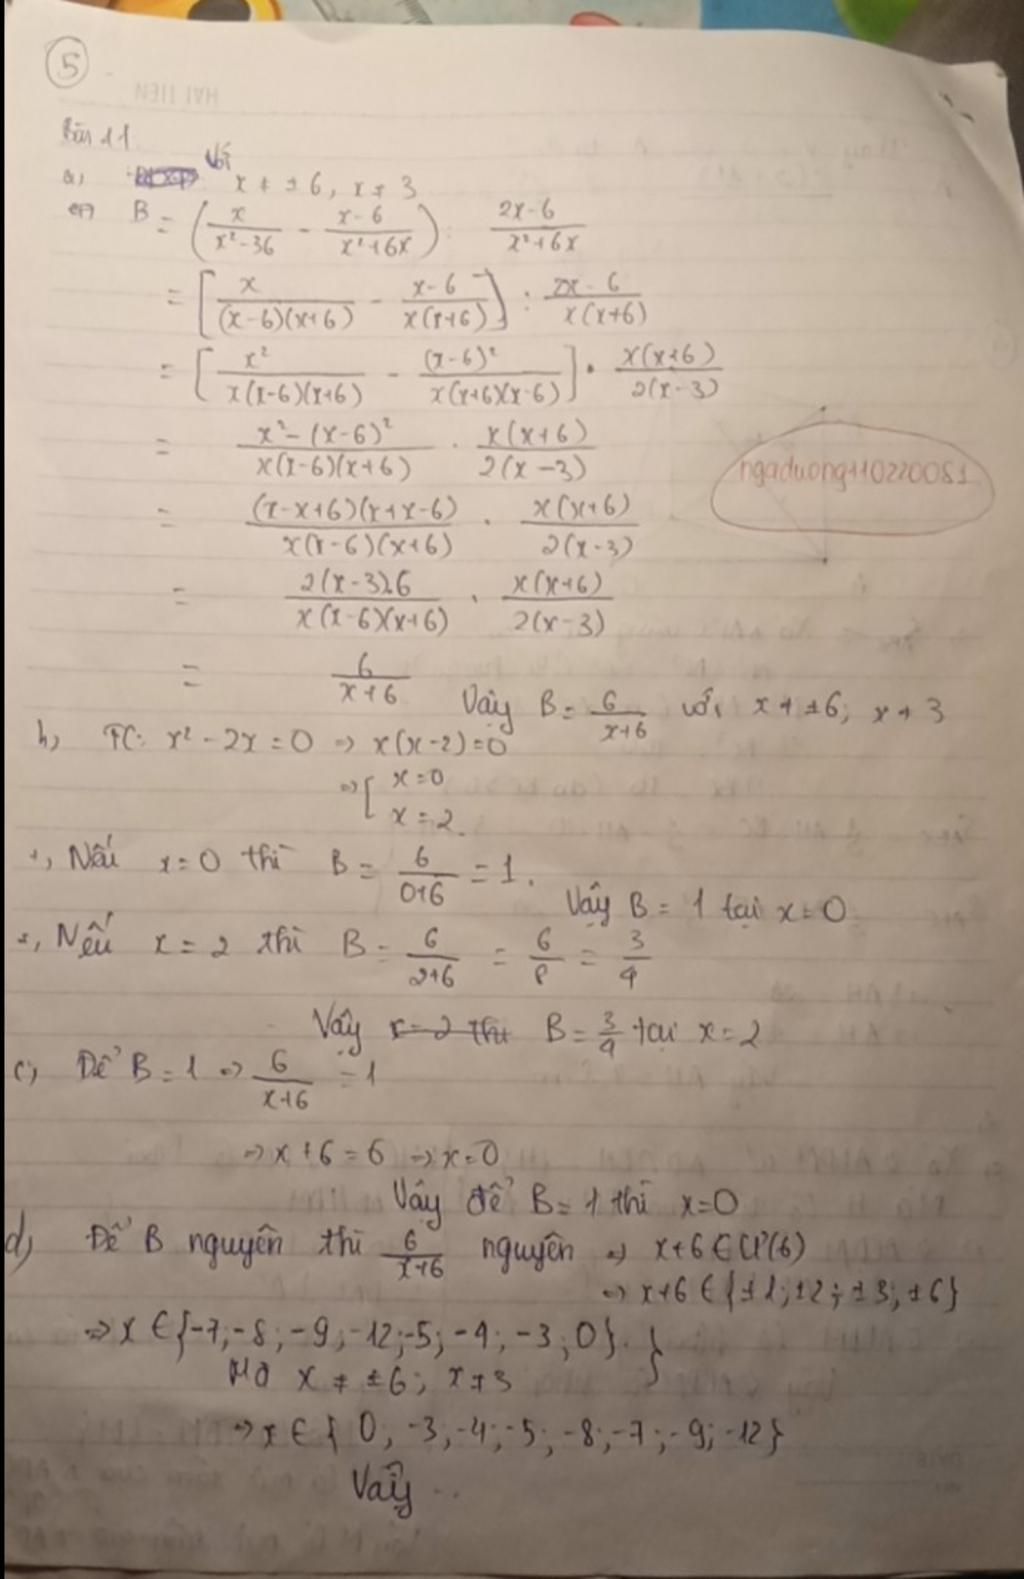 5
HAI TIEN
Bài 11
a, Với x ≠ ± 6, x ≠ 3
B = (x/(x²-36) - (x-6)/(x²+6x)) : (2x-6)/(x²+6x)
= [x/((x-6)(x+6)) - (x-6)/(x(x+6))] : (2x-6)/(x(x+6))
= [x²/(x(x-6)(x+6)) - (x-6)²/(x(x+6)(x-6))] . x(x+6)/(2(x-3))
= (x²-(x-6)²)/(x(x-6)(x+6)) . x(x+6)/(2(x-3))
ngaduong110220081
= (x-x+6)(x+x-6)/(x(x-6)(x+6)) . x(x+6)/(2(x-3))
= 2(x-3).6/(x(x-6)(x+6)) . x(x+6)/(2(x-3))
= 6/(x+6) Vậy B = 6/(x+6) với x ≠ ±6; x ≠ 3
b, TC: x² - 2x = 0 => x(x-2) = 0
=> [ x = 0
x = 2.
+, Nếu x = 0 thì B = 6/(0+6) = 1.
Vậy B = 1 tại x = 0
+, Nếu x = 2 thì B = 6/(2+6) = 6/8 = 3/4
Vậy x = 2 thì B = 3/4 tại x = 2
c, Để B = 1 => 6/(x+6) = 1
=> x + 6 = 6 => x = 0
Vậy để B = 1 thì x = 0
d, Để B nguyên thì 6/(x+6) nguyên => x+6 ∈ Ư(6)
=> x+6 ∈ {±1; ±2; ±3; ±6}
=> x ∈ {-7; -8; -9; -12; -5; -4; -3; 0}. }
Mà x ≠ ±6; x ≠ 3
=> x ∈ { 0; -3; -4; -5; -8; -7; -9; -12}
Vậy ..